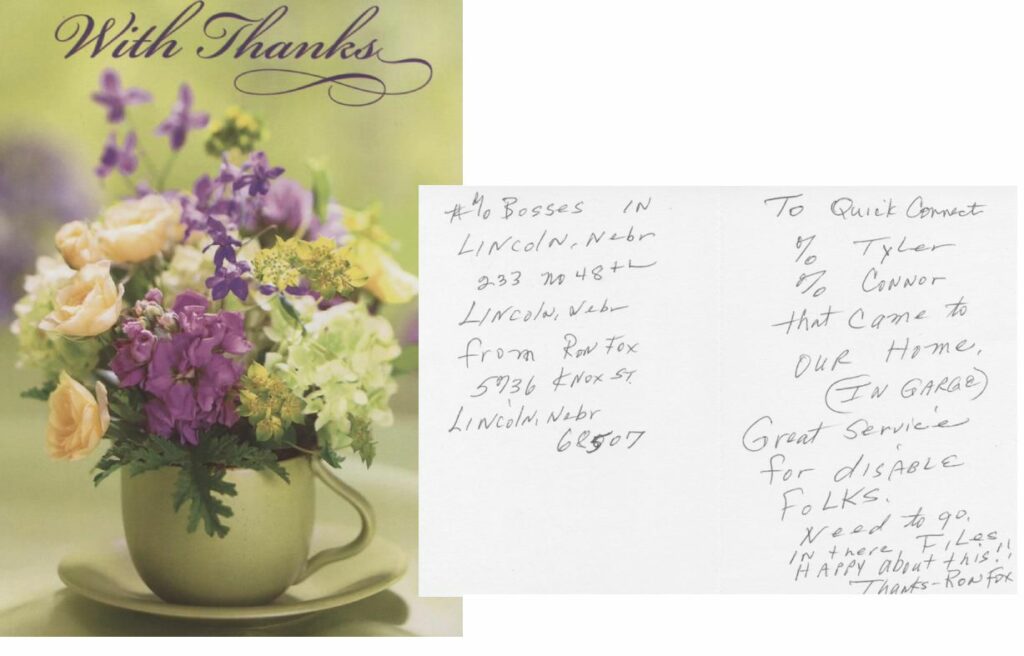 With Thanks
#% Bosses IN
LINCOLN, Nebr
233 no 48th
LINCOLN, Nebr
from Ron Fox
5736 Knox St.
LINCOLN, Nebr
68507
To Quick Connect
% Tyler
% Connor
that came to
OUR Home.
(IN GARGE)
Great Service
for disABLE
FOLKS.
Need to go.
IN there FILes
HAPPY about this!!
Thanks-Ron Fox